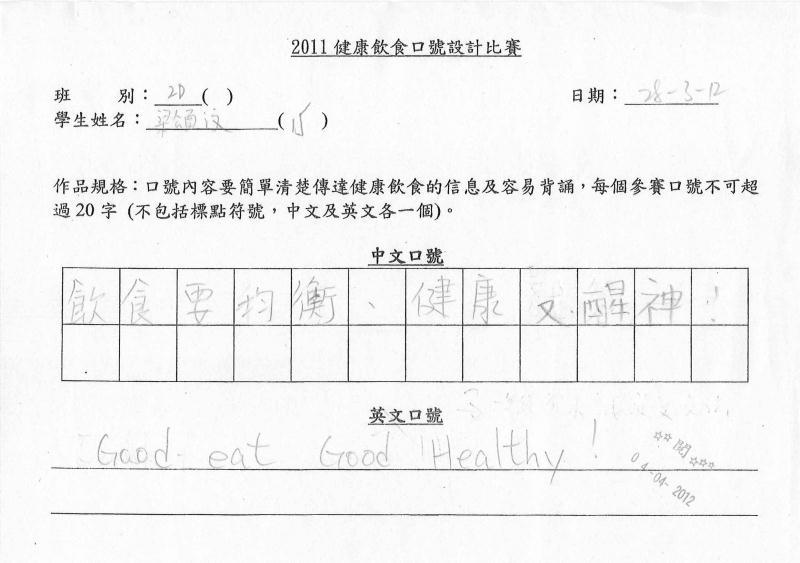 2011 健康飲食口號設計比賽
班 別：2D ( ) 日期：28-3-12
學生姓名：梁頌汶 (15)
作品規格：口號內容要簡單清楚傳達健康飲食的信息及容易背誦，每個參賽口號不可超
過 20 字 (不包括標點符號，中文及英文各一個)。
中文口號
飲食要均衡、健康又醒神！
英文口號
Good eat Good Healthy!
☆☆ 閱 ☆☆☆
0 4-04- 2012